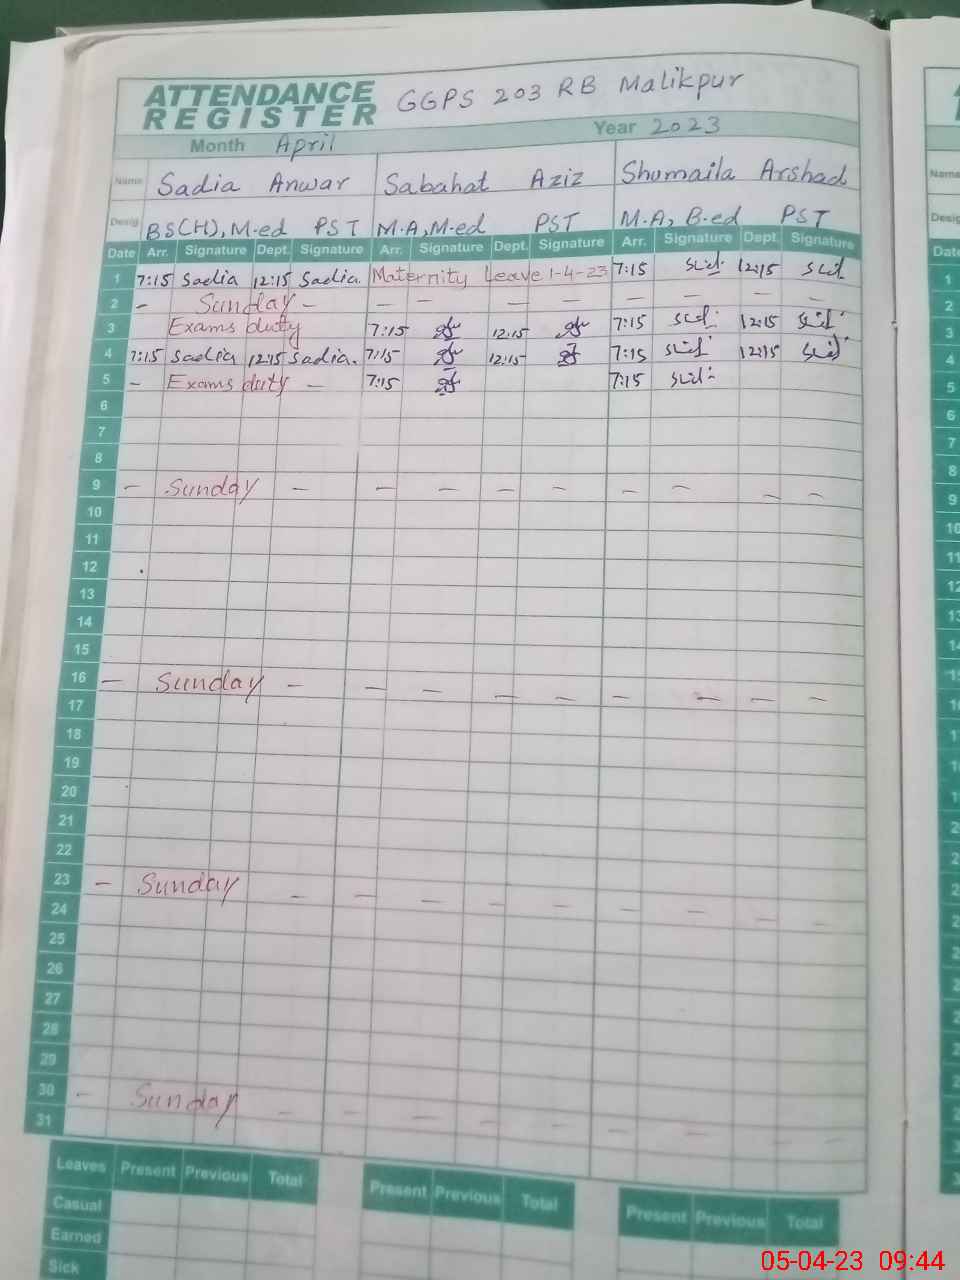 ATTENDANCE REGISTER GGPS 203 RB Malikpur
Month April Year 2023
Name Sadia Anwar Sabahat Aziz Shumaila Arshad
Desig BS(H), M.ed PST M.A, M.ed PST M.A, B.ed PST
Date Arr. Signature Dept. Signature Arr. Signature Dept. Signature Arr. Signature Dept. Signature
1 7:15 Sadia 12:15 Sadia. Maternity Leave 1-4-23 7:15 12:15
2 - Sunday - - - - - - - - -
3 Exams duty 7:15 12:15 7:15 12:15
4 7:15 Sadia 12:15 Sadia. 7:15 12:15 7:15 12:15
5 - Exams duty - 7:15 7:15
6
7
8
9 - Sunday - - - - - - - - -
10
11
12
13
14
15
16 - Sunday - - - - - - - - -
17
18
19
20
21
22
23 - Sunday - - - - - - - - -
24
25
26
27
28
29
30 - Sunday - - - - - - - - -
31
Leaves Present Previous Total Present Previous Total Present Previous Total
Casual
Earned
Sick
Name
Desig
Date
1
2
3
4
5
6
7
8
9
10
11
12
13
14
05-04-23 09:44